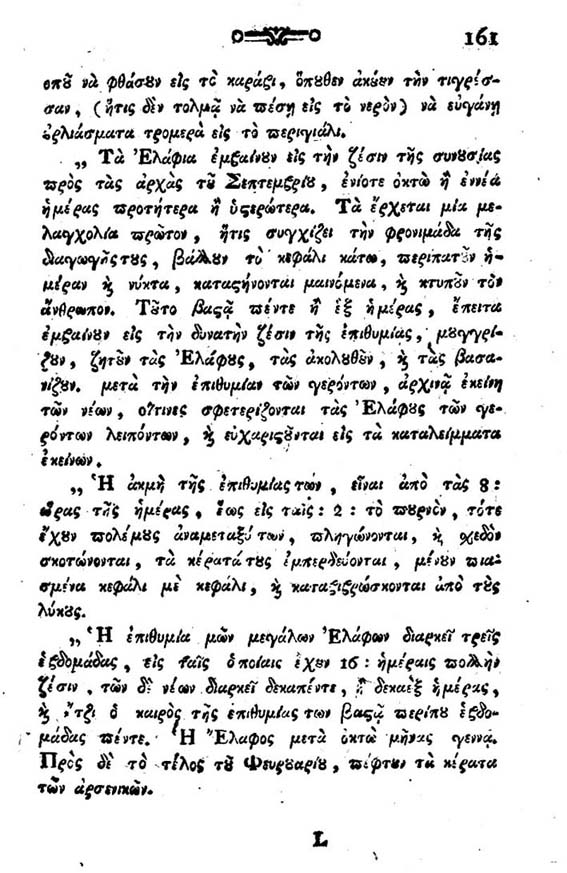 161
ὁποῦ νὰ φθάσουν εἰς τὸ καράβι, ὅπουθεν ἀκούουν τὴν τιγρέσ-
σαν, (ἥτις δὲν τολμᾷ νὰ πέσῃ εἰς τὸ νερὸν) νὰ εὐγάνῃ
ὀρλιάσματα τρομερὰ εἰς τὸ περιγιάλι.
„ Τὰ Ἐλάφια ἐμβαίνουν εἰς τὴν ζέσιν τῆς συνουσίας
πρὸς τὰς ἀρχὰς τοῦ Σεπτεμβρίου, ἐνίοτε ὀκτὼ ἢ ἐννέα
ἡμέρας προτήτερα ἢ ὑστερώτερα. Τὰ ἔρχεται μία με-
λαγχολία πρῶτον, ἥτις συγχίζει τὴν φρονιμάδα τῆς
διαγωγῆς τους, βάλλουν τὸ κεφάλι κάτω, περιπατοῦν ἡ-
μέραν ϗ νύκτα, καταστήνονται μαινόμενα, ϗ κτυποῦν τὸν
ἄνθρωπον. Τοῦτο βαστᾷ πέντε ἢ ἓξ ἡμέρας, ἔπειτα
ἐμβαίνουν εἰς τὴν δυνατὴν ζέσιν τῆς ἐπιθυμίας, μουγγρί-
ζουν, ζητοῦν τὰς Ἐλάφους, τὰς ἀκολουθοῦν, ϗ τὰς βασα-
νίζουν. μετὰ τὴν ἐπιθυμίαν τῶν γερόντων, ἀρχινᾷ ἐκείνη
τῶν νέων, οἵτινες σφετερίζονται τὰς Ἐλάφους τῶν γε-
ρόντων λειπόντων, ϗ εὐχαριστοῦνται εἰς τὰ καταλείμματα
ἐκείνων.
„ Ἡ ἀκμὴ τῆς ἐπιθυμίας των, εἶναι ἀπὸ τὰς 8:
ὥρας τῆς ἡμέρας, ἕως εἰς ταῖς: 2: τὸ πουρνὸν, τότε
ἔχουν πολέμους ἀναμεταξύ των, πληγώνονται, ϗ σχεδὸν
σκοτώνονται, τὰ κέρατά τους ἐμπερδεύονται, μένουν πια-
σμένα κεφάλι μὲ κεφάλι, ϗ καταξιβρώσκονται ἀπὸ τοὺς
λύκους.
„ Ἡ ἐπιθυμία μῶν μεγάλων Ἐλάφων διαρκεῖ τρεῖς
ἑβδομάδας, εἰς ταῖς ὁποίαις ἔχουν 16: ἡμέραις πολλὴν
ζέσιν, τῶν δὲ νέων διαρκεῖ δεκαπέντε, ἢ δεκαὲξ ἡμέρας,
ϗ ἔτζι ὁ καιρὸς τῆς ἐπιθυμίας των βαστᾷ περίπου ἑβδο-
μάδας πέντε. Ἡ Ἔλαφος μετὰ ὀκτὼ μῆνας γεννᾷ.
Πρὸς δὲ τὸ τέλος τοῦ Φευρουαρίου, πέφτουν τὰ κέρατα
τῶν ἀρσενικῶν.
L